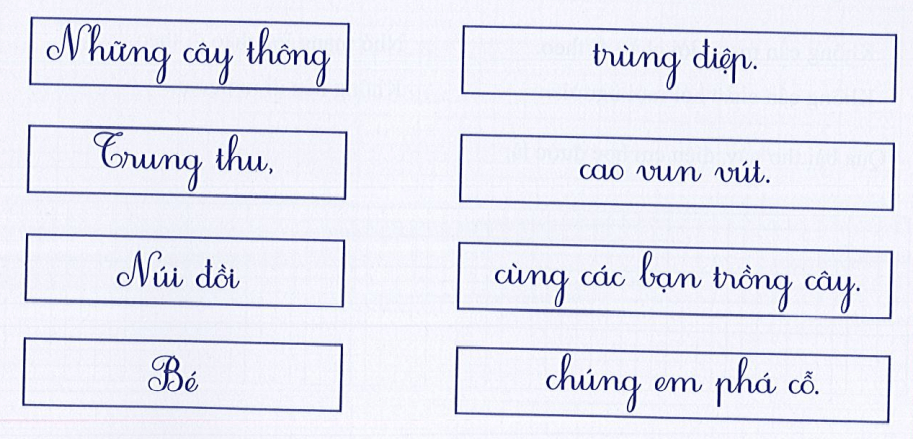 Những cây thông
trùng điệp.
Trung thu,
cao vun vút.
Núi đồi
cùng các bạn trồng cây.
Bé
chúng em phá cỗ.